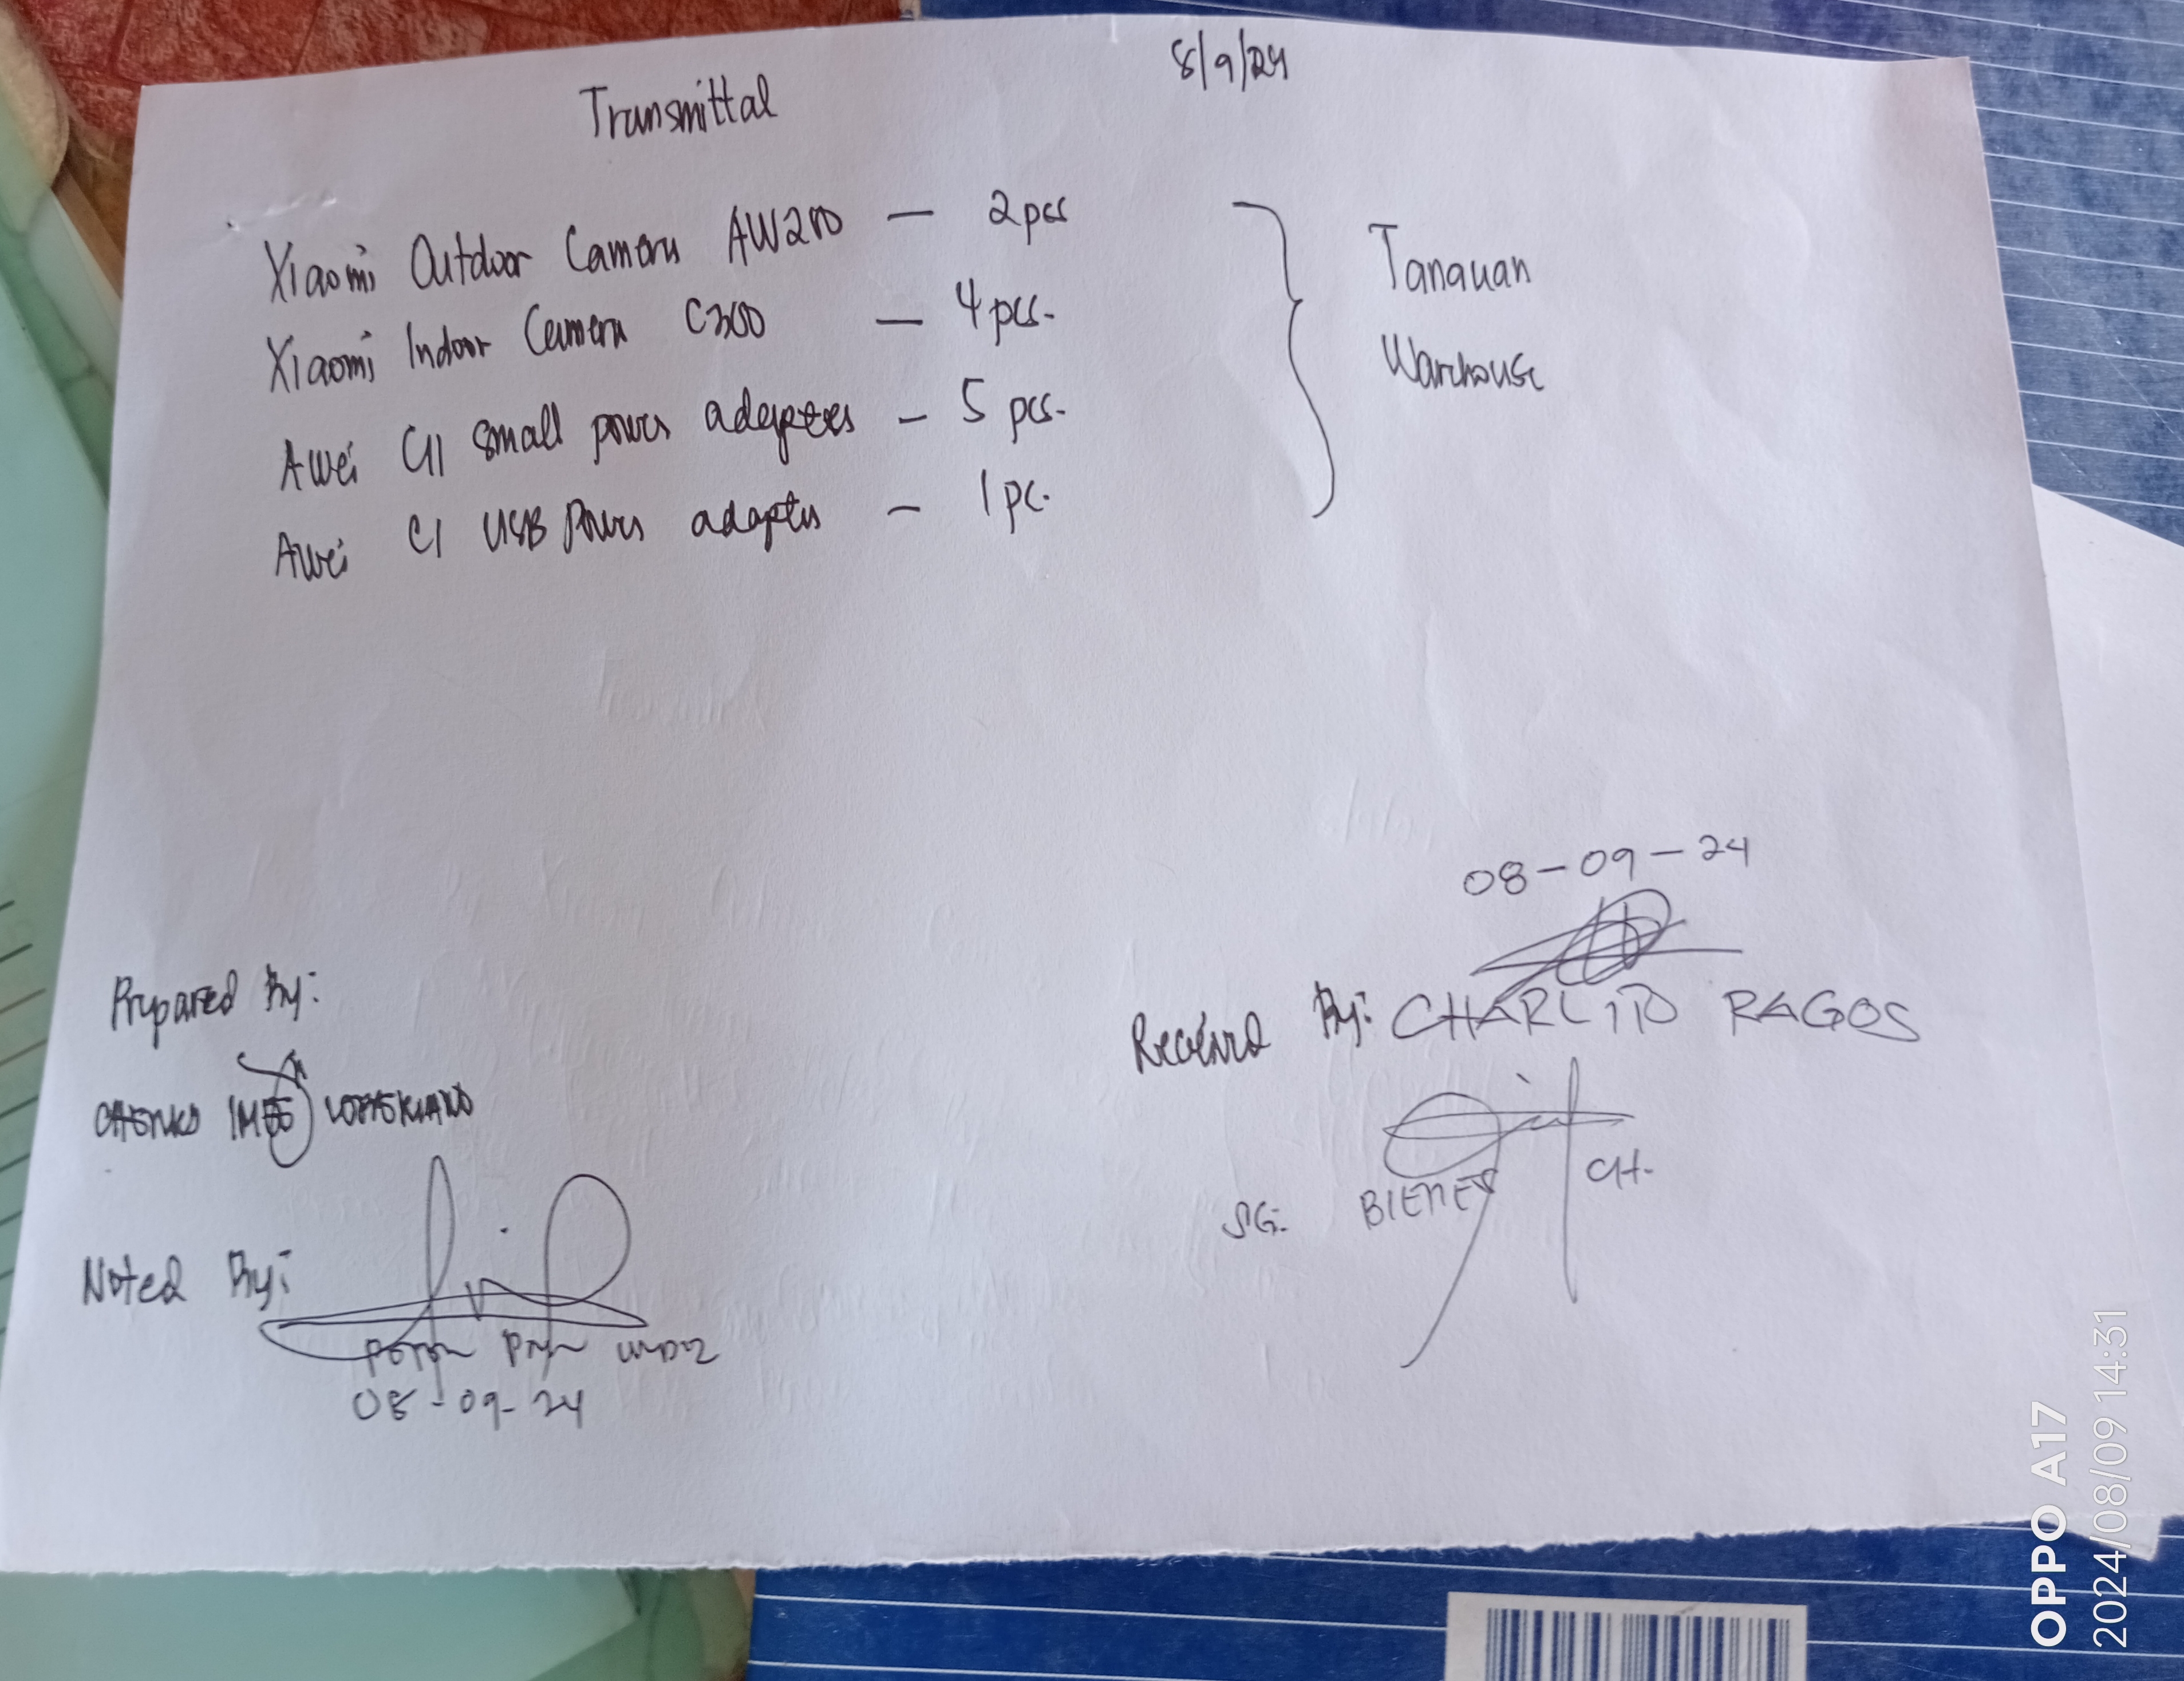 Transmittal 8/9/24
Xiaomi Outdoor Camera AW200 — 2pcs
Xiaomi Indoor Camera C300 — 4pcs.
Awei C11 small power adapters — 5 pcs.
Awei C1 USB Power adapter — 1pc.
Tanauan
Warehouse
08-09-24
Prepared By:
Received By: CHARLITO RAGOS
SG: BIENES CH.
Noted By:
08-09-24
OPPO A17
2024/08/09 14:31